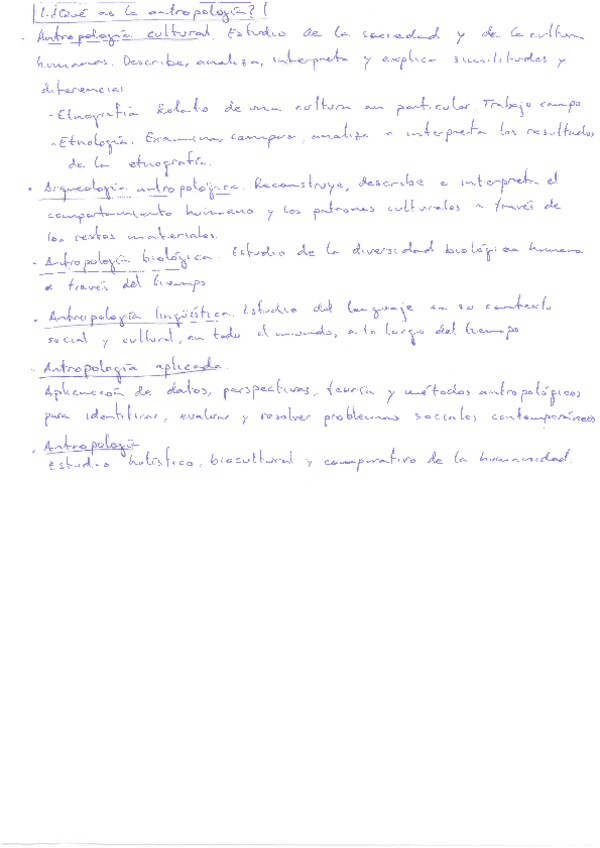 1. ¿Qué es la antropología?
· Antropología cultural. Estudio de la sociedad y de la cultura
humanas. Describe, analiza, interpreta y explica similitudes y
diferencias
- Etnografía Relato de una cultura en particular. Trabajo campo
- Etnología. Examina, compara, analiza e interpreta los resultados
de la etnografía.
· Arqueología antropológica. Reconstruye, describe e interpreta el
comportamiento humano y los patrones culturales a través de
los restos materiales.
- Antropología biológica. Estudio de la diversidad biológica humana
a través del tiempo
· Antropología lingüística. Estudio del lenguaje en su contexto
social y cultural, en todo el mundo, a lo largo del tiempo
- Antropología aplicada.
Aplicación de datos, perspectivas, teoría y métodos antropológicos
para identificar, evaluar y resolver problemas sociales contemporáneos
· Antropología
Estudio holístico, biocultural y comparativo de la humanidad.